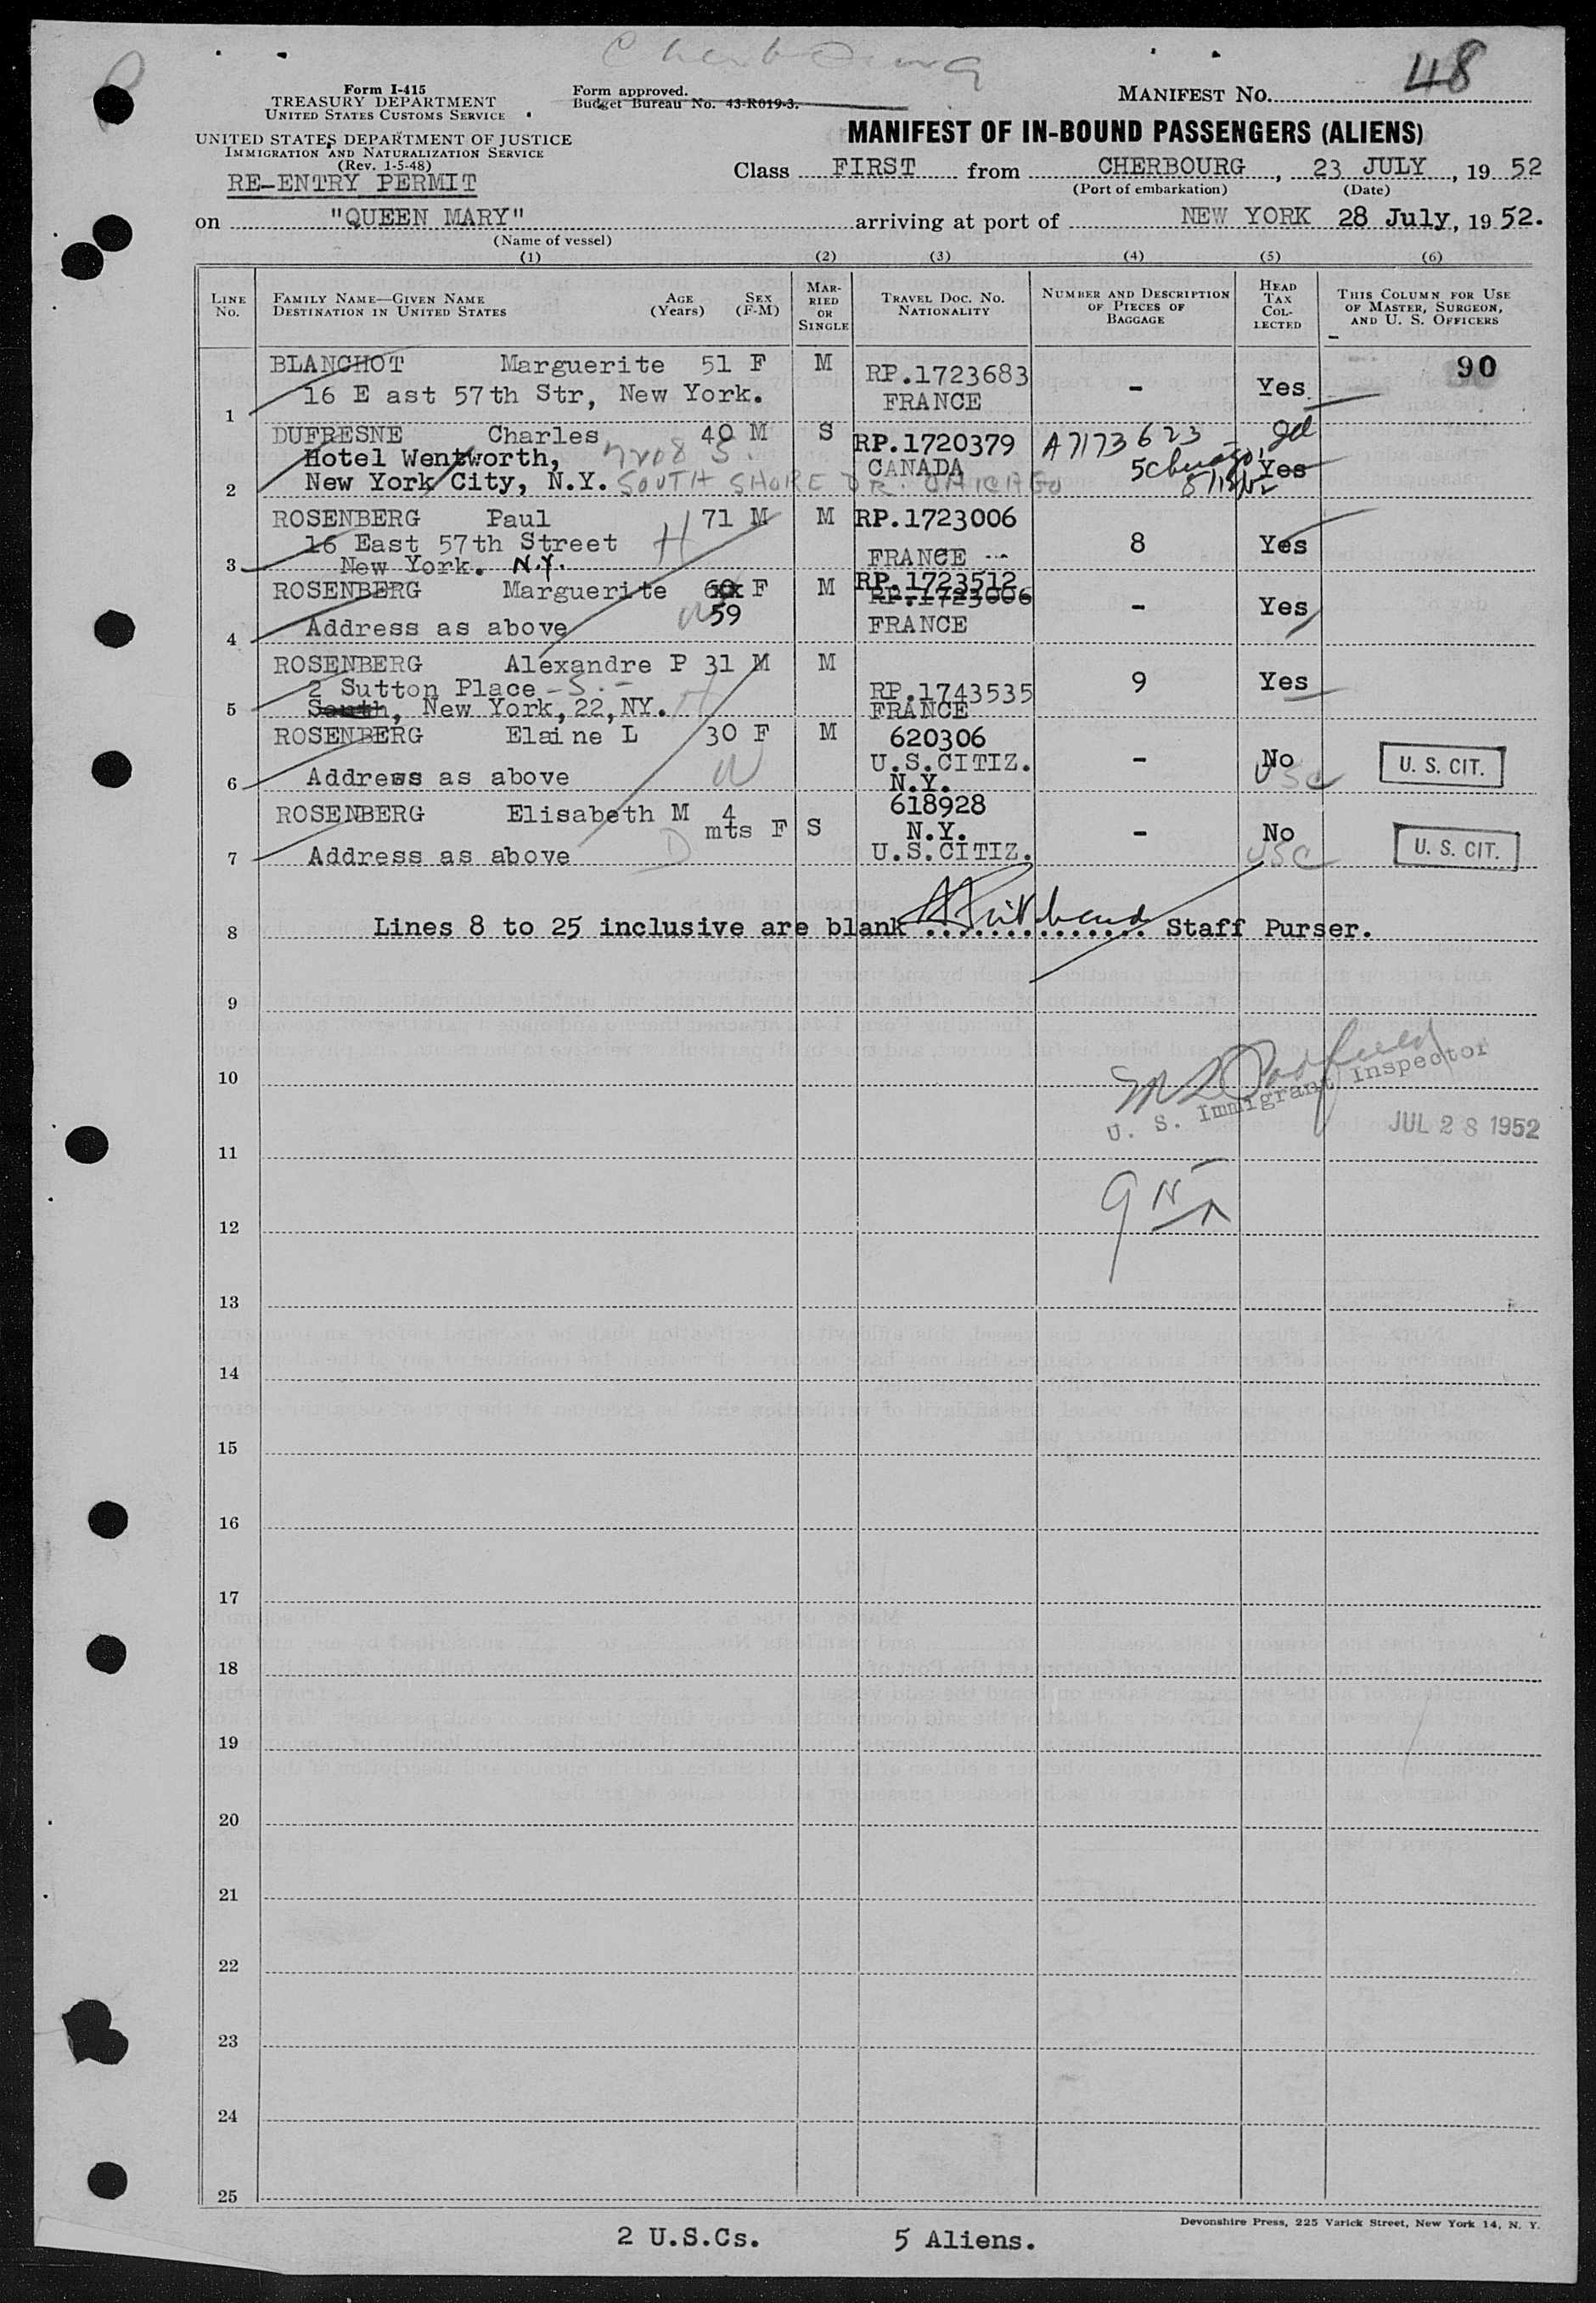 Cherbourg
48
Form I-415
TREASURY DEPARTMENT
UNITED STATES CUSTOMS SERVICE
Form approved.
Budget Bureau No. 43-R019-3.
MANIFEST NO.
UNITED STATES DEPARTMENT OF JUSTICE
IMMIGRATION AND NATURALIZATION SERVICE
(Rev. 1-5-48)
RE-ENTRY PERMIT
MANIFEST OF IN-BOUND PASSENGERS (ALIENS)
Class FIRST from CHERBOURG, 23 JULY, 19 52
(Port of embarkation) (Date)
on "QUEEN MARY" arriving at port of NEW YORK 28 July, 19 52.
(Name of vessel)
(1) (2) (3) (4) (5) (6)
LINE NO.
FAMILY NAME—GIVEN NAME
DESTINATION IN UNITED STATES
AGE (Years)
SEX (F-M)
MARRIED OR SINGLE
TRAVEL DOC. NO. NATIONALITY
NUMBER AND DESCRIPTION OF PIECES OF BAGGAGE
HEAD TAX COLLECTED
THIS COLUMN FOR USE OF MASTER, SURGEON, AND U. S. OFFICERS
BLANCHOT Marguerite 51 F M RP.1723683 90
16 E ast 57th Str, New York. FRANCE - Yes
1
DUFRESNE Charles 40 M S RP.1720379 A7173623
Hotel Wentworth, 7208 S. CANADA 5 Chicago Yes
2 New York City, N.Y. SOUTH SHORE DR. CHICAGO
ROSENBERG Paul 71 M M RP.1723006
16 East 57th Street H 8 Yes
3 New York. N.Y. FRANCE
ROSENBERG Marguerite 60 F M RP.1723512
RP.1723006
59 - Yes
4 Address as above W FRANCE
ROSENBERG Alexandre P 31 M M
2 Sutton Place - S. - RP.1743535 9 Yes
5 South, New York,22,NY. H FRANCE
ROSENBERG Elaine L 30 F M 620306
U.S.CITIZ. - No U. S. CIT.
6 Address as above W N.Y. USC
ROSENBERG Elisabeth M 4 mts F S 618928
N.Y. - No U. S. CIT.
7 Address as above D U.S.CITIZ. USC
8 Lines 8 to 25 inclusive are blank .............. Staff Purser.
9
10
U. S. Immigrant Inspector
JUL 28 1952
11
12
13
14
15
16
17
18
19
20
21
22
23
24
25
Devonshire Press, 225 Varick Street, New York 14, N. Y.
2 U.S.Cs. 5 Aliens.